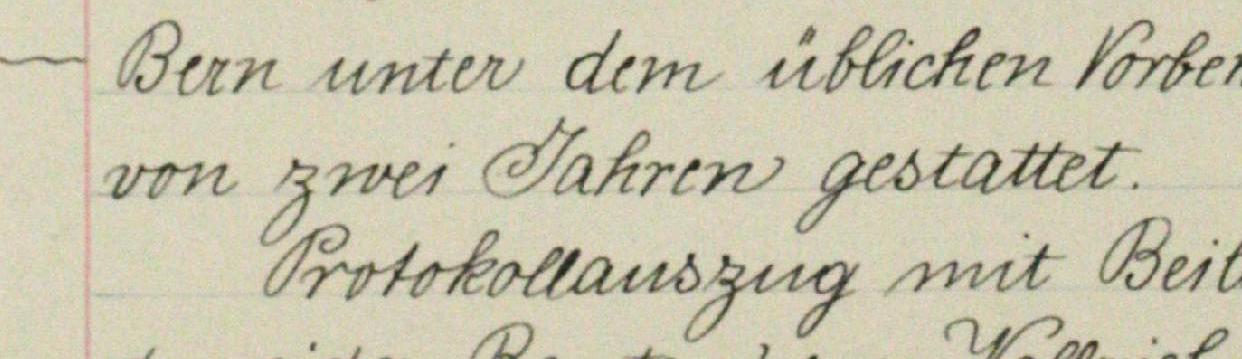 Bern unter dem üblichen
von zwei Jahren gestattet.
Protokollauszug mit